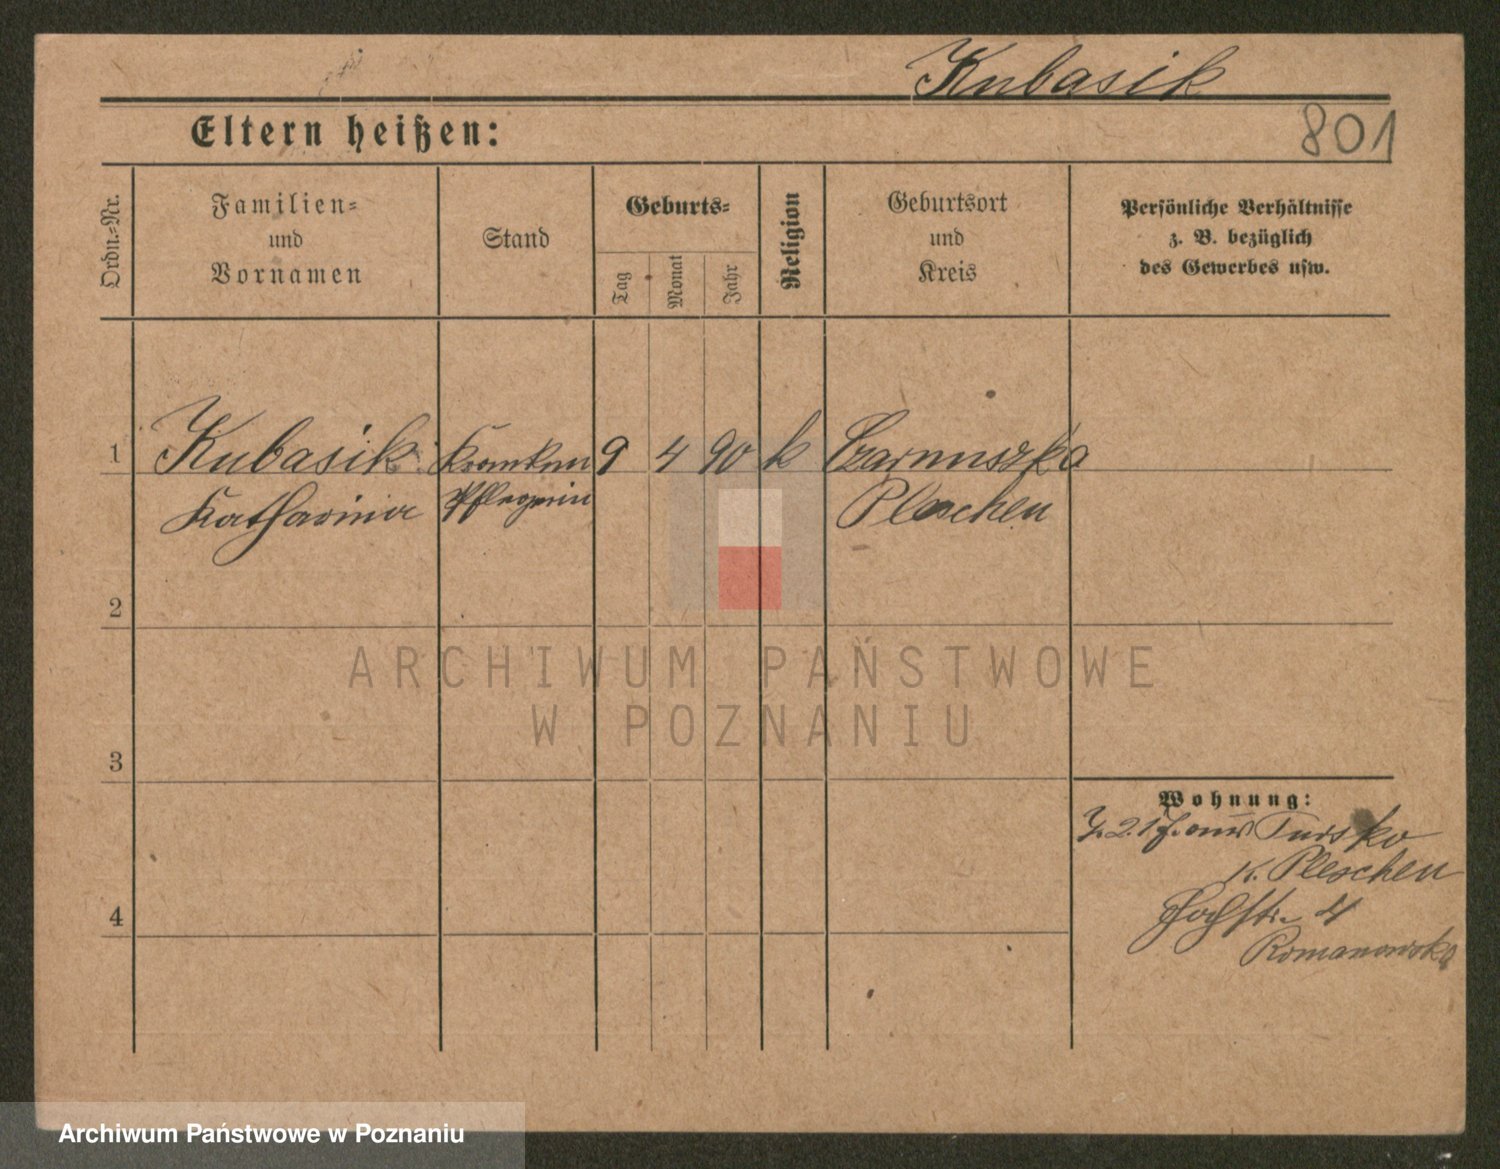 Kubasik
801
Eltern heißen:
Ordn.-Nr.
Familien-
und
Vornamen
Stand
Geburts-
Tag
Monat
Jahr
Religion
Geburtsort
und
Kreis
Persönliche Verhältnisse
z. B. bezüglich
des Gewerbes usw.
1
Kubasik
Katharina
Kranken
Pflegerin
9
4
90
k
Czarnuszka
Pleschen
2
3
4
Wohnung:
aus Tursko
K. Pleschen
Hochstr. 4
Romanowska
ARCHIWUM PAŃSTWOWE
W POZNANIU
Archiwum Państwowe w Poznaniu